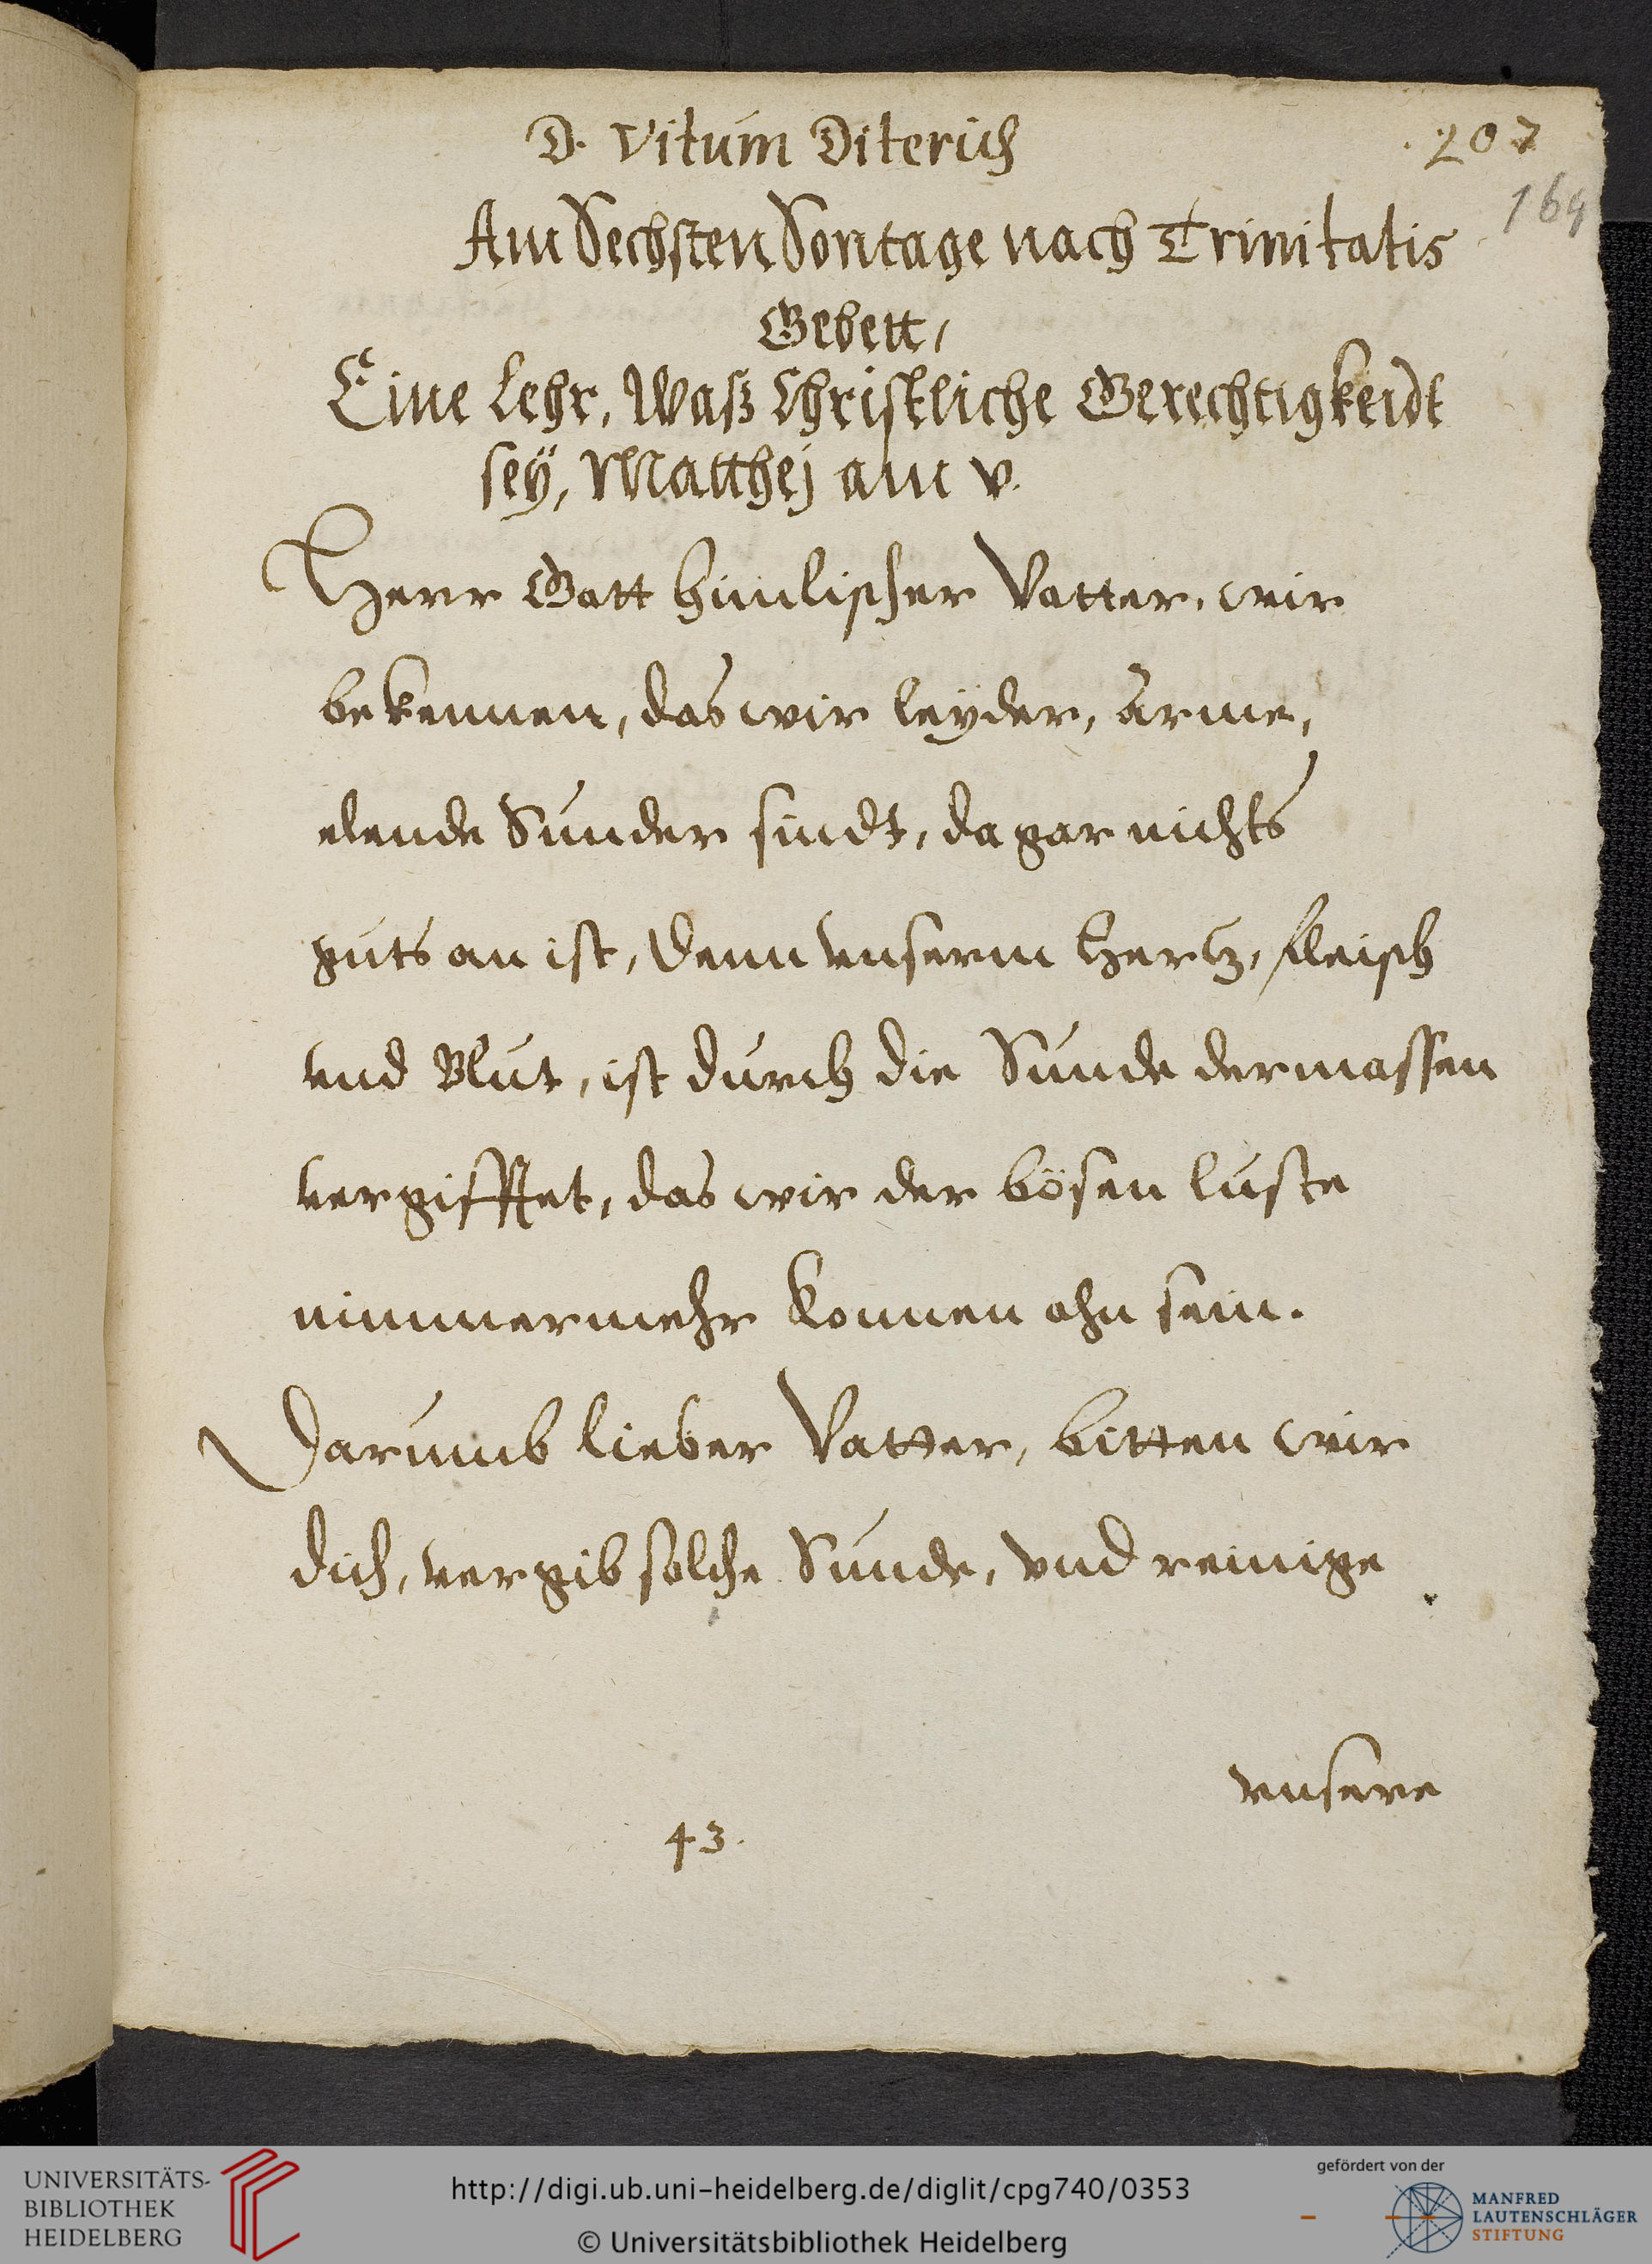 D. Vitum Diterich
. 207
164
Am Sechsten Sontage nach Trinitatis
Gebett,
Eine Lehr, Waß Christliche Gerechtigkeidt
sey, Matthej am v.
Herr Gott himlischer Vatter, wir
bekennen, das wir leyder, arme,
elende Sunder sindt, da gar nichts
guts an ist, denn vnserm hertz, fleisch
vnd Blut, ist durch die Sunde dermassen
vergifftet, das wir der bösen luste
nimmermehr konnen ohn sein.
Darumb lieber Vatter, bitten wir
dich, vergib solche Sunde, vnd reinige
vnsere
43.
UNIVERSITÄTS-
BIBLIOTHEK
HEIDELBERG
http://digi.ub.uni-heidelberg.de/diglit/cpg740/0353
© Universitätsbibliothek Heidelberg
gefördert von der
MANFRED
LAUTENSCHLÄGER
STIFTUNG